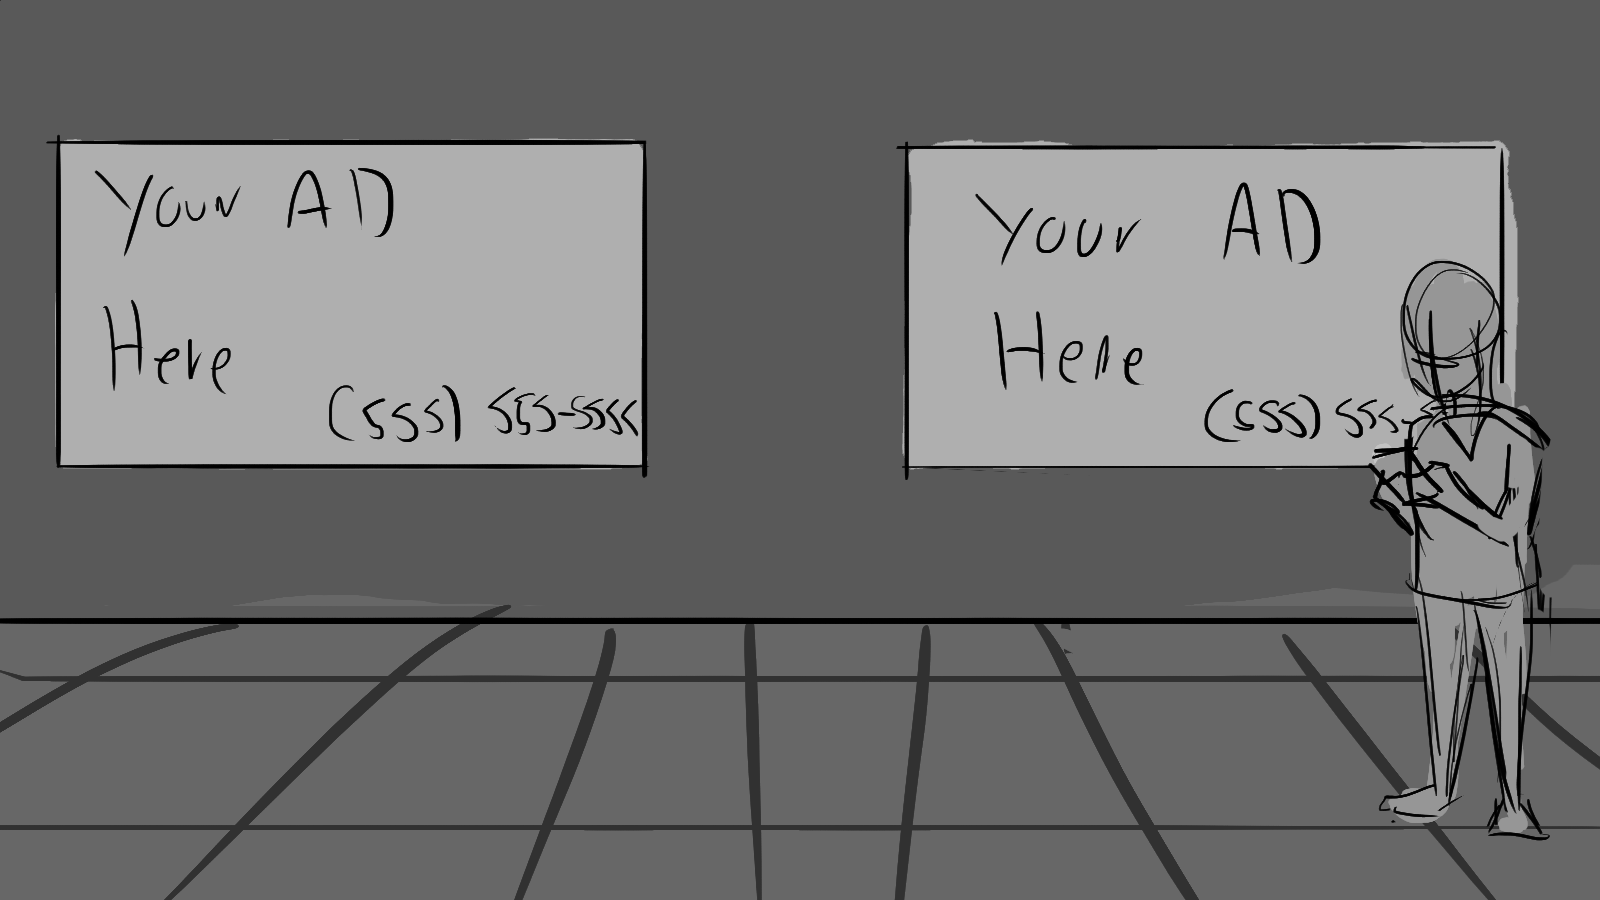 Your AD
Here
(555) 555-5555
Your AD
Here
(555) 555-